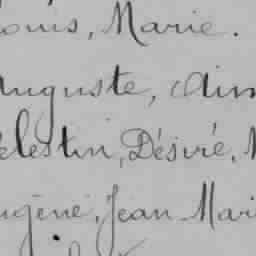 ouis, Marie.
Auguste, Aim
élestin, Désiré, M
ugène, Jean Mari